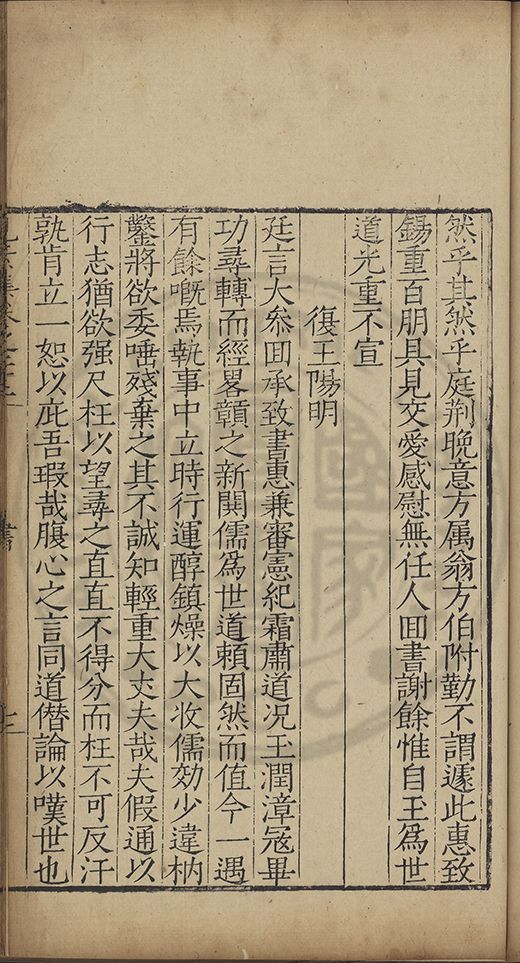 然乎其然乎庭荊晚意方属翁方伯附勤不謂遽此惠致
錫重百朋具見交愛感慰無任人囬書謝餘惟自玉爲世
道光重不宣
復王陽明
廷言大叅囬承致書惠兼審憲紀霜肅道况玉潤漳寇畢
功尋轉而經畧贑之新闗儒爲世道頼固然而值今一遇
有餘嘅焉執事中立時行運醇鎮燥以大收儒効少違枘
鑿將欲委唾殘棄之其不誠知輕重大丈夫哉夫假通以
行志猶欲强尺枉以望尋之直直不得分而枉不可反汗
孰肯立一恕以庇吾瑕哉腹心之言同道僭論以嘆世也
書